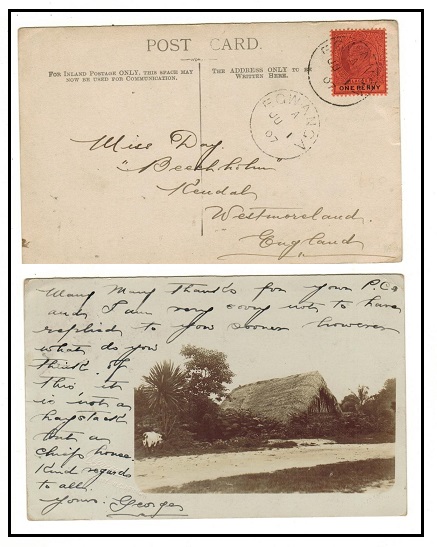 POST CARD.
FOR INLAND POSTAGE ONLY, THIS SPACE MAY
NOW BE USED FOR COMMUNICATION.
THE ADDRESS ONLY TO BE
WRITTEN HERE.
ONE PENNY
EGWANGA
A
JU 1
07
Miss Day.
"Beechholm
Kendal
Westmoreland.
England
Many Many thanks for your P.Cs
and I am very sorry not to have
replied to you sooner however
what do you
think of
this it
is not a
haystack
but a
chiefs house.
Kind regards
to all.
yours. George